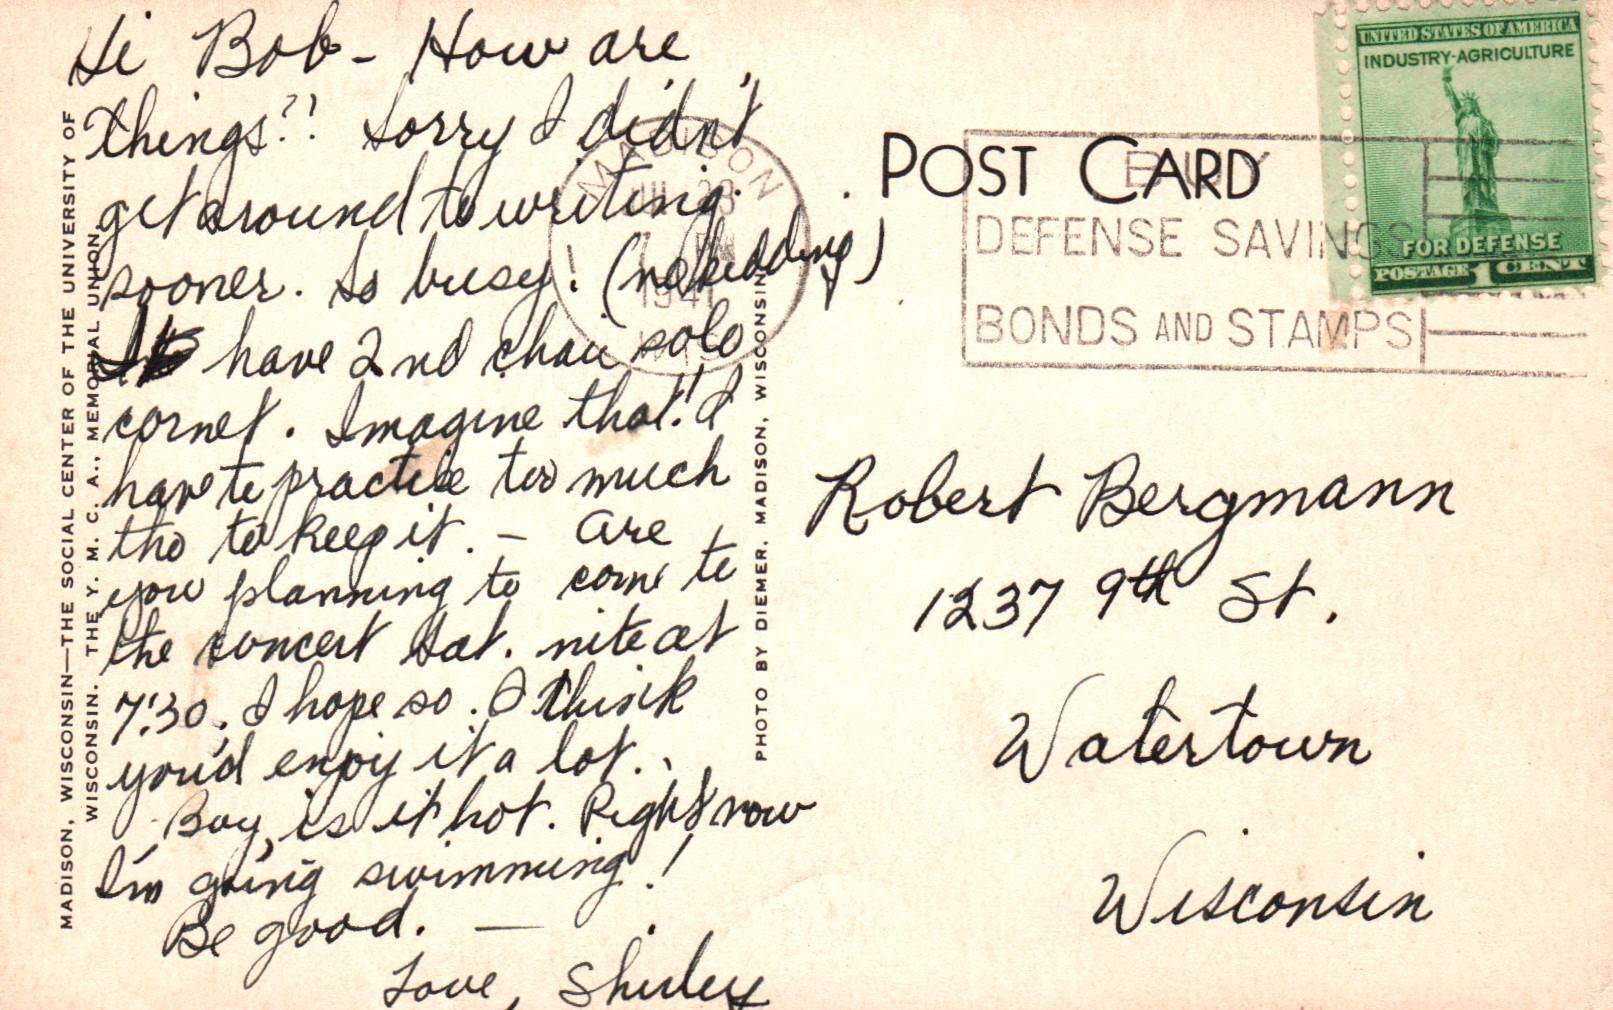 Hi Bob - How are
things?! Sorry I didn't
get around to writing
sooner. So busy! (no kidding)
I have 2nd chair solo
cornet. Imagine that! I
have to practice too much
tho to keep it. - Are
you planning to come to
the concert Sat. nite at
7:30. I hope so. I think
you'd enjoy it a lot.
Boy, is it hot. Right now
I'm going swimming!
Be good. —
Love, Shirley
MADISON, WISCONSIN—THE SOCIAL CENTER OF THE UNIVERSITY OF
WISCONSIN. THE Y. M. C. A., MEMORIAL UNION.
PHOTO BY DIEMER. MADISON, WISCONSIN.
MADISON
JUL 23
PM
1941
POST CARD
BUY
DEFENSE SAVINGS
BONDS AND STAMPS
UNITED STATES OF AMERICA
INDUSTRY-AGRICULTURE
FOR DEFENSE
POSTAGE 1 CENT
Robert Bergmann
1237 9th St.
Watertown
Wisconsin